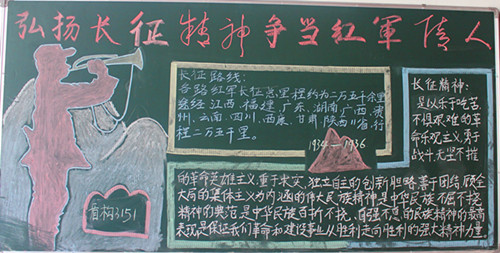 弘扬长征精神争当红軍传人
长征路线：
各路红军长征总里程约为二万五千余里
途经江西、福建、广东、湖南、广西、贵
州、云南、四川、西康、甘肃、陕西11省、行
程二万五千里。
1934—1936
长征精神：
是以乐于吃苦、
不惧艰难的革
命乐观主义；勇于
战斗、无坚不摧
的革命英雄主义；重于求实、独立自主的创新胆略；善于团结、顾全
大局的集体主义为内涵的伟大民族精神是中华民族不屈不挠
精神的典范是中华民族百折不挠、自强不息的民族精神的最高
表现是保证我们革命和建设事业从胜利走向胜利的强大精神力量
3151